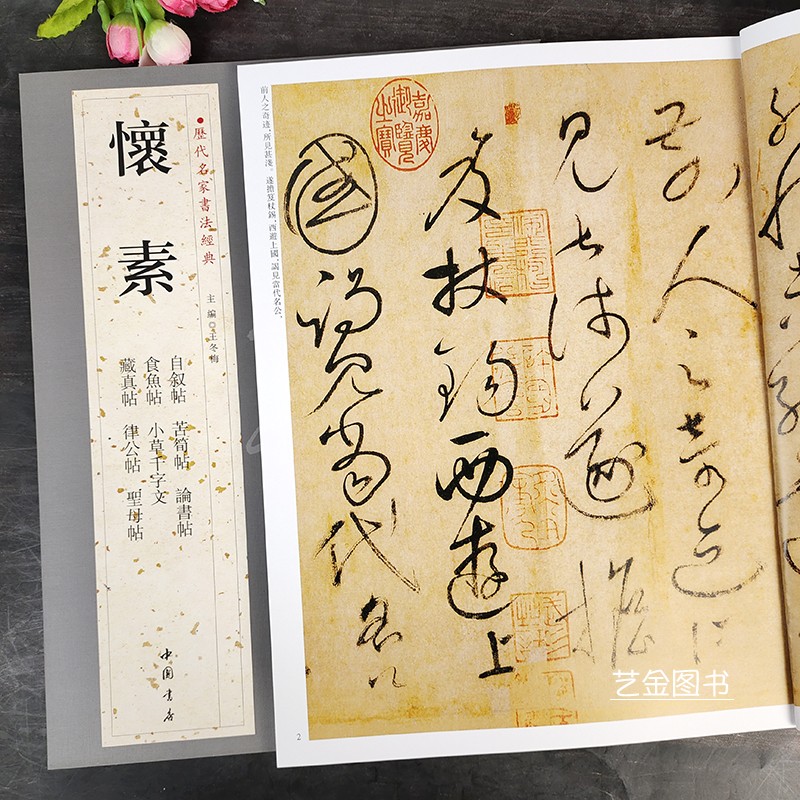 歷代名家書法經典
懷素
主編◎王冬梅
自叙帖 苦筍帖 論書帖
食魚帖 小草千字文
藏真帖 律公帖 聖母帖
中國書店
前人之奇迹所
見甚淺遂擔
笈杖錫西遊上
國謁見當代名公
嘉慶
御覽
之寶
前人之奇迹，所見甚淺。遂擔笈杖錫，西遊上國，謁見當代名公，
2
艺金图书